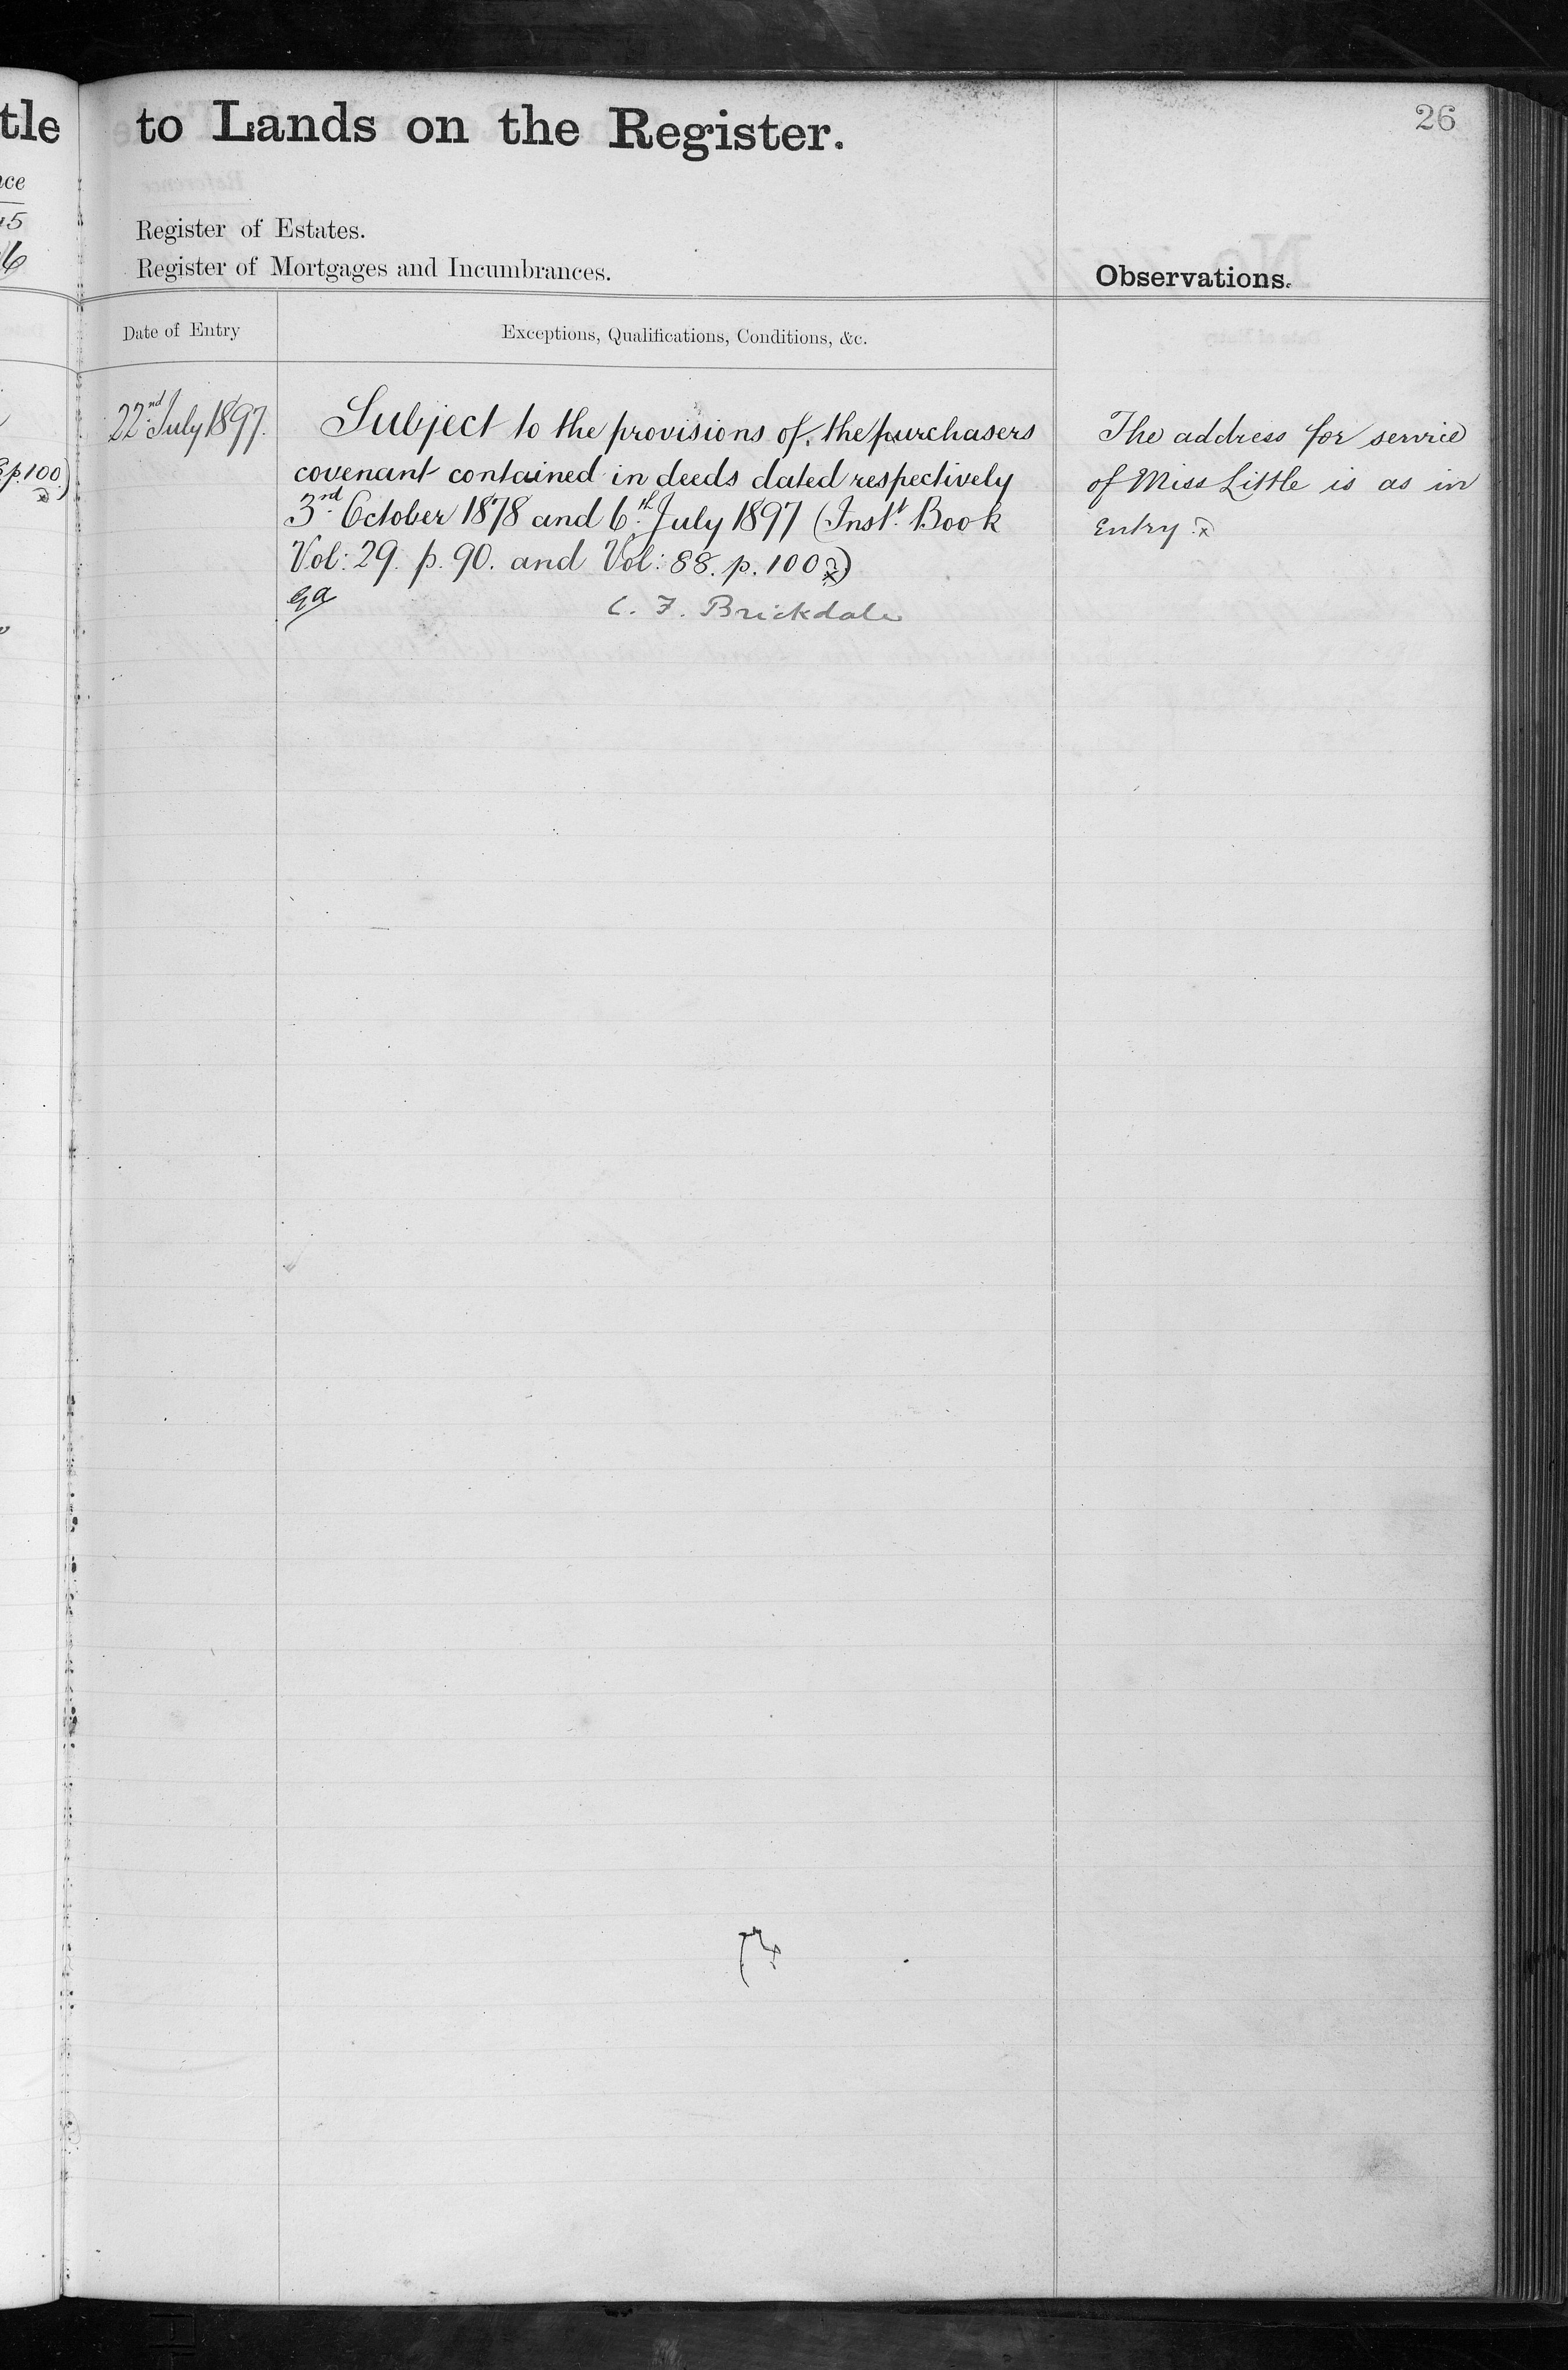 tle to Lands on the Register.
26
Register of Estates.
Register of Mortgages and Incumbrances.
Observations.
Date of Entry
Exceptions, Qualifications, Conditions, &c.
22nd July 1897.
Subject to the provisions of the purchasers
covenant contained in deeds dated respectively
3rd October 1878 and 6th July 1897 (Inst. Book
Vol: 29. p. 90. and Vol: 88. p. 100)
C. F. Brickdale
The address for service
of Miss Little is as in
Entry
p.100)